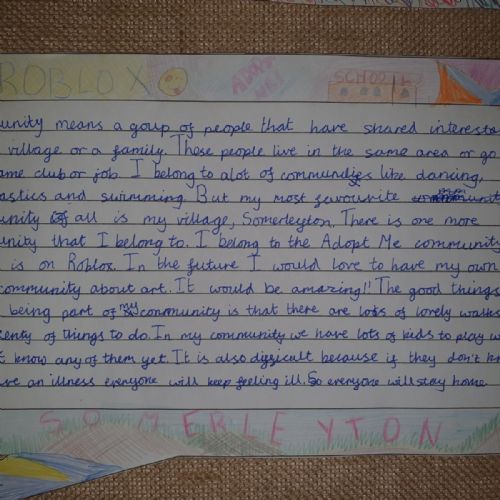 ROBLOX ADOPT ME! SCHOOL
unity means a goup of people that have shared interests
village or a family. These people live in the same area or go
ame club or job. I belong to alot of communities like dancing,
astics and swimming. But my most favourite
unity of all is my village, Somerleyton. There is one more
unity that I belong to. I belong to the Adopt Me community
is on Roblox. In the future I would love to have my own
community about art. It would be amazing!! The good things
being part of my community is that there are lots of lovely walks
lenty of things to do. In my community we have lots of kids to play w
t know any of them yet. It is also difficult because if they don't kn
ave an illness everyone will keep feeling ill. So everyone will stay home
SOMERLEYTON